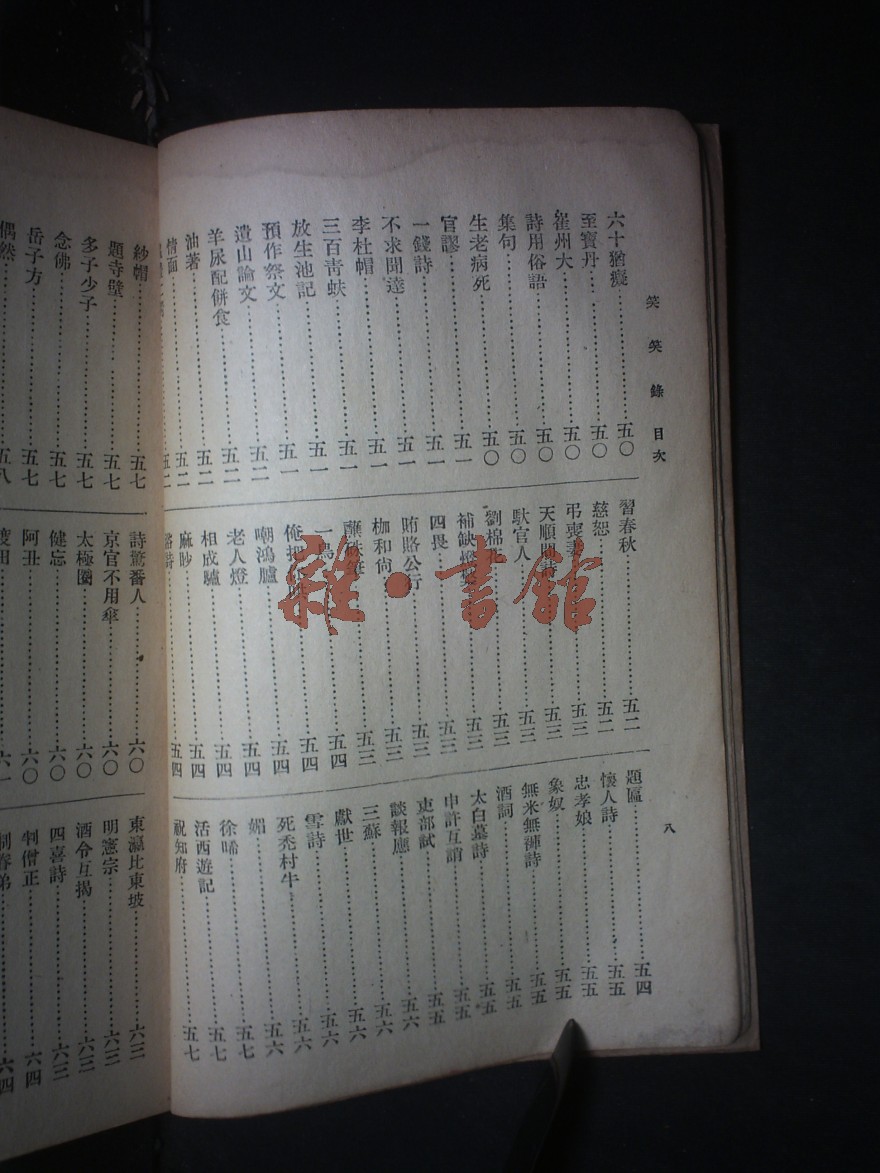 笑笑錄 目次
八
六十猶癡……五〇
至寶丹……五〇
崔州大……五〇
詩用俗語……五〇
集句……五〇
生老病死……五〇
官謬……五一
一錢詩……五一
不求聞達……五一
李杜帽……五一
三百靑蚨……五一
放生池記……五一
預作祭文……五一
遣山論文……五二
羊尿配餅食……五二
油著……五二
情面……五二
習春秋……五二
慈恕……五二
弔喪……五三
天順……五三
馱官人……五三
劉棉……五三
補缺燈……五三
四畏……五三
賄賂公行……五三
枷和尚……五三
五三
一鳥……五四
俺把……五四
嘲鴻臚……五四
老人燈……五四
相成驢……五四
麻眇……五四
題區……五四
懷人詩……五五
忠孝娘……五五
象奴……五五
無米無褌詩……五五
酒詞……五五
太白墓詩……五五
申許互謂……五五
吏部試……五五
談報應……五六
三蘇……五六
獻世……五六
雪詩……五六
死禿村牛……五六
媚……五七
徐唏……五七
活西遊記……五七
祝知府……五七
紗帽……五七
題寺壁……五七
多子少子……五七
念佛……五七
岳子方……五七
偶然……五八
詩驚番人……六〇
京官不用傘……六〇
太極圈……六〇
健忘……六〇
阿丑……六〇
六一
東瀛比東坡……六三
明憲宗……六三
酒令互揭……六三
四喜詩……六三
判僧正……六四
六四
雜·書館